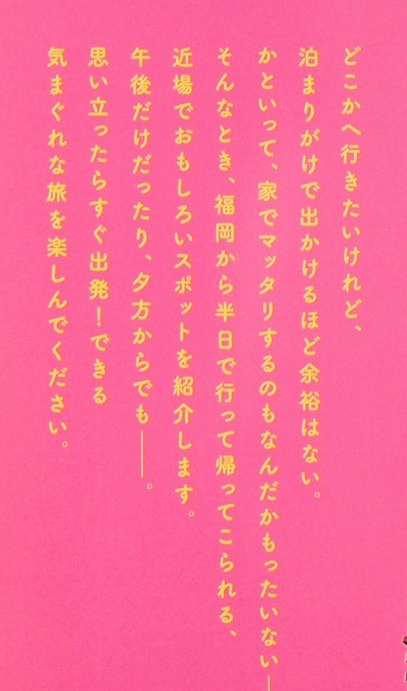 どこかへ行きたいけれど、
泊まりがけで出かけるほど余裕はない。
かといって、家でマッタリするのもなんだかもったいない―
そんなとき、福岡から半日で行って帰ってこられる、
近場でおもしろいスポットを紹介します。
午後だけだったり、夕方からでも――。
思い立ったらすぐ出発！できる
気まぐれな旅を楽しんでください。